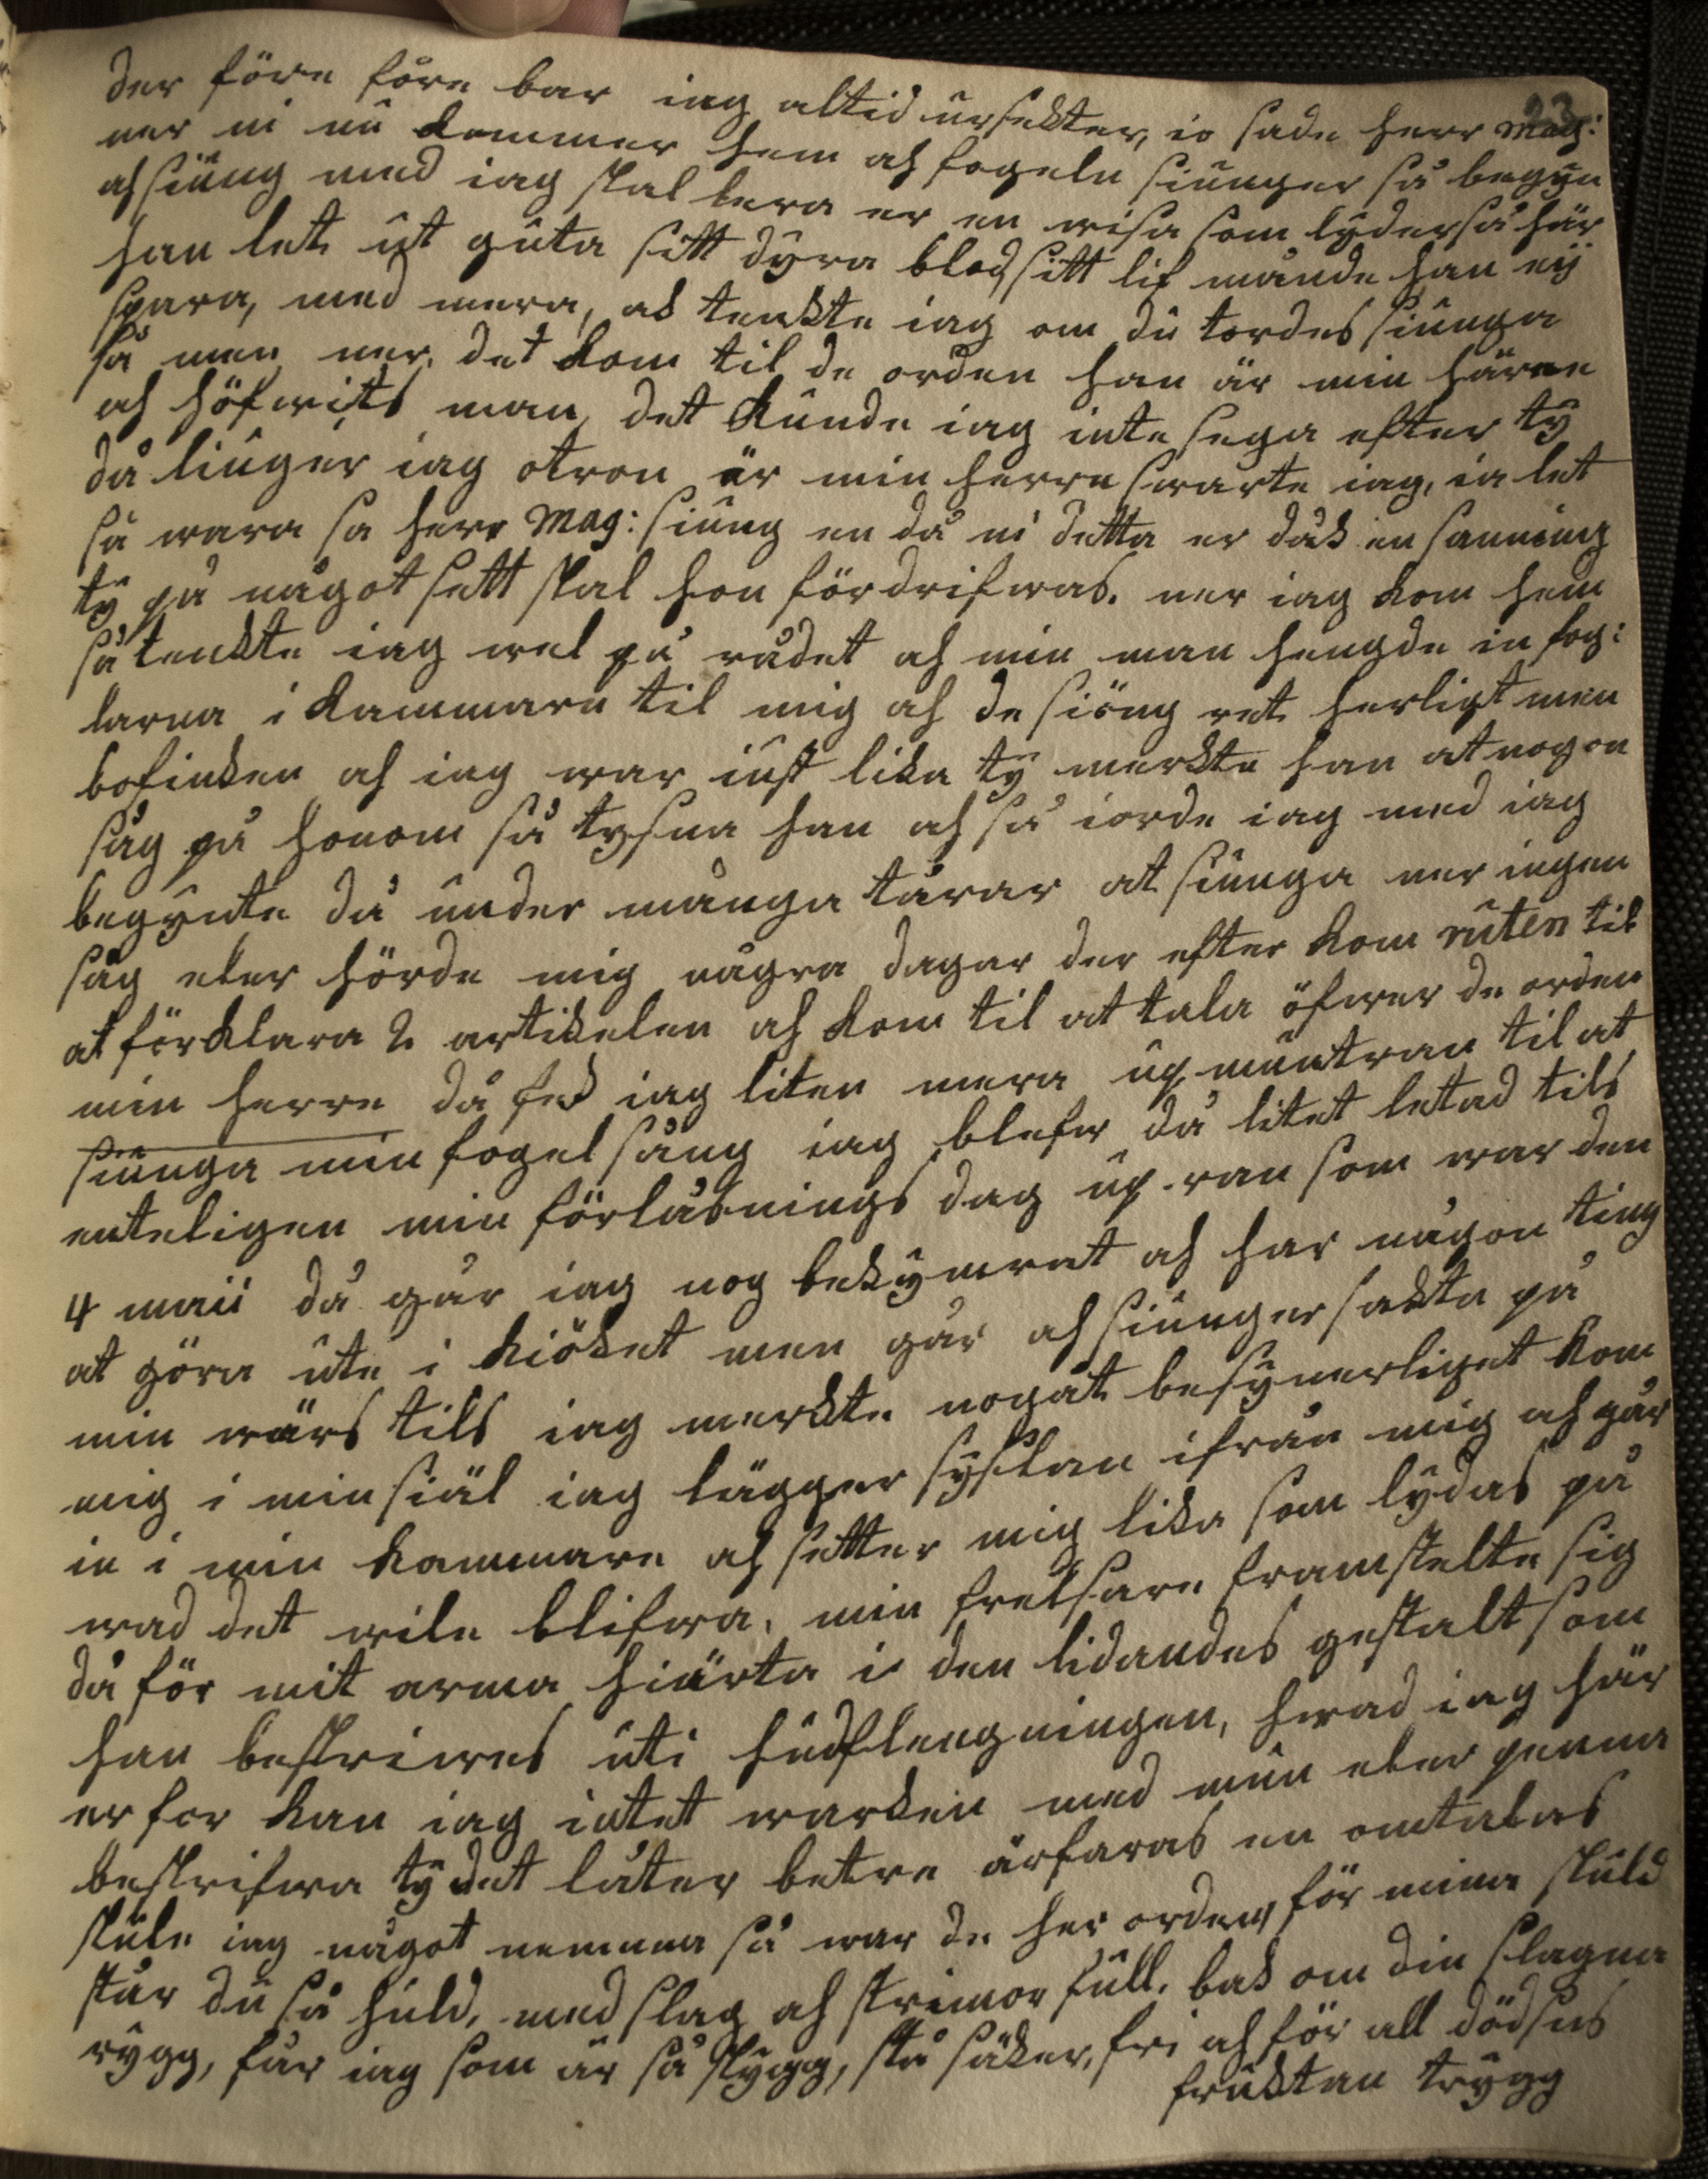 23
der före före bar iag altid ursekter, io sade herr Mag:
ner ni nu kommer hem ah fogeln siunger så begyn
ah siung med iag skal lera er en wisa som lyder så här
han let ut guta sitt dyra blod, sitt lif mände han ey
spara, med mera, ak tenkte iag om du tordes siunga
så men ner det kom til de orden han är min härre
ah höfwits man, det kunde iag inte sega efter ty
då liuger iag otron är min herre swarte iag, ia let
så wara sa herr Mag: siung en då ni detta er däk en sanning
ty på något sett skal hon fördrifwas. ner iag kom hem
så tenkte iag wel på rådet ah min man hengde in fog:
larna i kammarn til mig ah de siöng ret herligt men
bofinken ah iag war iust lika ty merkte han at nogon
såg på honom så tysna han ah så iorde iag med iag
begynte då under många tårar at siunga ner ingen
såg eler hörde mig några dagar der efter kom ruten til
at förklara 2 artikelen ah kom til at tala öfwer de orden
min herre då fek iag liten mera upmuntran til at
siunga min fogel sång iag blefw då litet letad tils
enteligen min förlåsnings dag up ran som war den
4 maii då går iag nog bekymrat ah har någon ting
at göra ute i kiöket men går ah siunger sakta på
min wärs tils iag merkte nogåt besynerliget kom
mig i min siäl iag lägger syslan ifrån mig ah går
in i min kammare ah setter mig lika som lydas på
wad det wile blifwa, min frelsare framstelte sig
då för mit arma hiärta i den lidandes gestalt som
han beskriwes uti hudflengningen, hwad iag här
erfor kan iag intet warken med mun eler penna
beskrifwa ty det låter betre ärfaras en omtalas
skule iag något nemna så war de her orden, för mina skuld
står du så huld, med slag ah strimor full, bak om din slagna
rygg, får iag som är så stygg, stå säker, fri ah för all dödsens
fruktan trygg